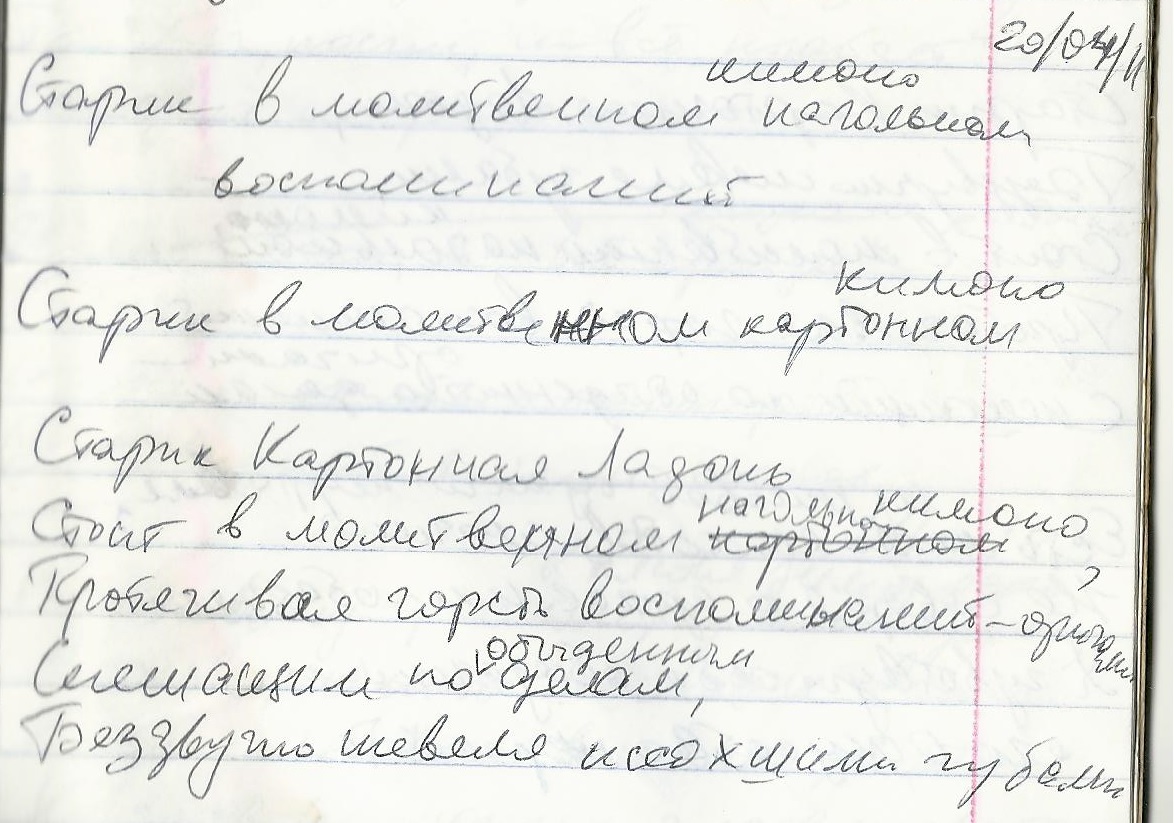 20/04/11
кимоно
Старик в молитвенном нагольном
воспоминаний
кимоно
Старик в молитвенном картонном
Старик Картонная Ладонь
нагольном кимоно
Стоит в молитвенном картонном
Протягивая горсть воспоминаний –
обыденным
Спешащим по делам,
Беззвучно шевеля иссохшими губами